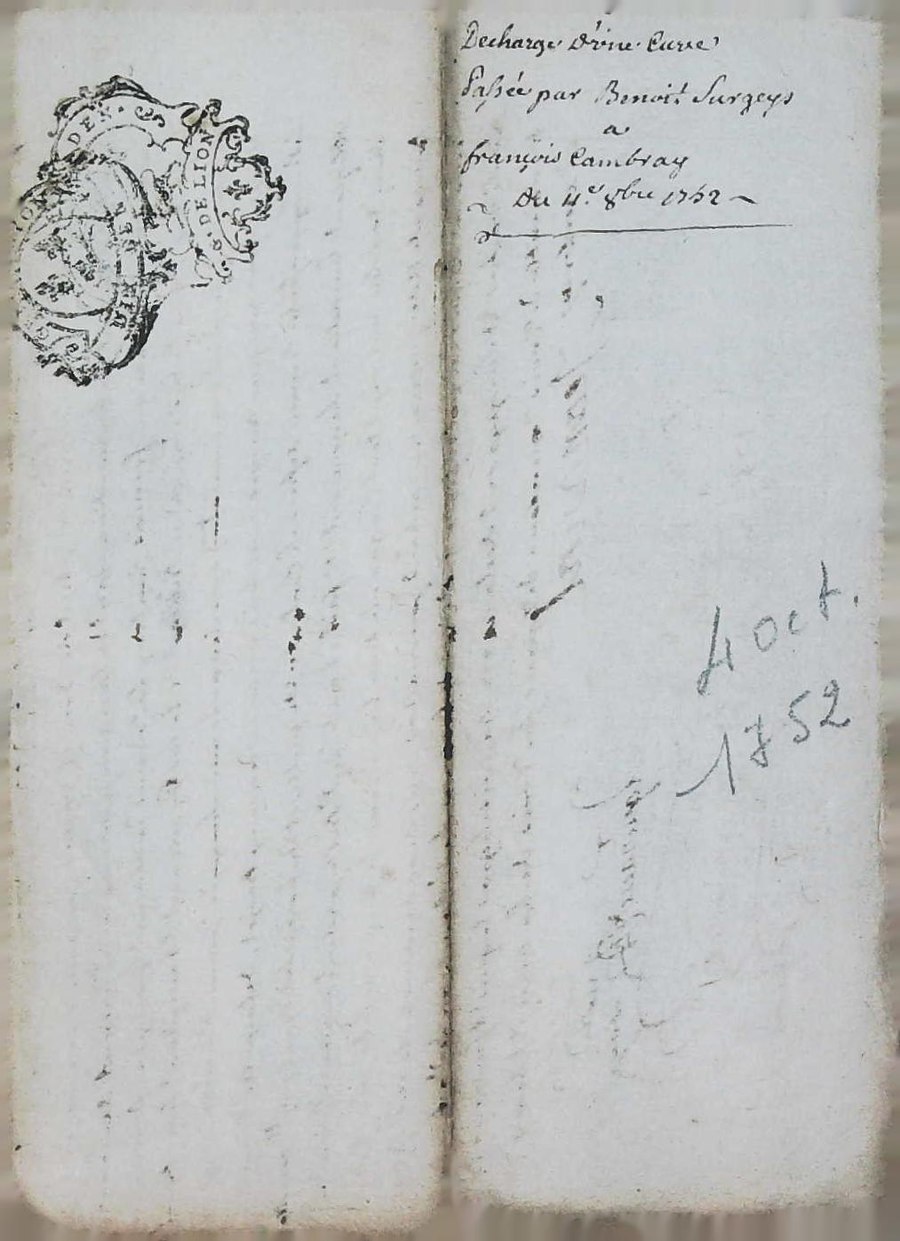 DEN.
G. DE LION
DIX
Decharge d'une Cuve
Passée par Benoit Surgeys
a
françois Cambray
Du 4e. 8bre 1752
4 Oct.
1752